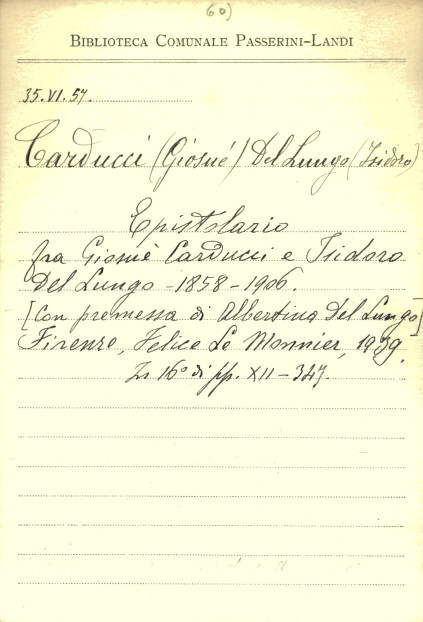 60)
BIBLIOTECA COMUNALE PASSERINI-LANDI
35.VI.57.
Carducci (Giosuè) Del Lungo (Isidoro)
Epistolario
fra Giosuè Carducci e Isidoro
Del Lungo - 1858 - 1906.
[Con premessa di Albertina Del Lungo]
Firenze, Felice Le Monnier, 1939.
In 16° di pp. XII - 347.